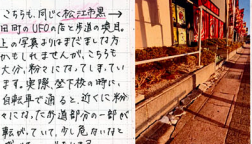 こちらも、同じく松江市黒→
田町のUFOの店と歩道の境目。
上の写真よりはまだましな方
かもしれませんが、こちらも
大分、粉々になってしまってい
ます。実際、坐下校の時に、
自転車で通ると、近くに粉々
になったため道部分の一部が
転がっていて、少し危ないなと